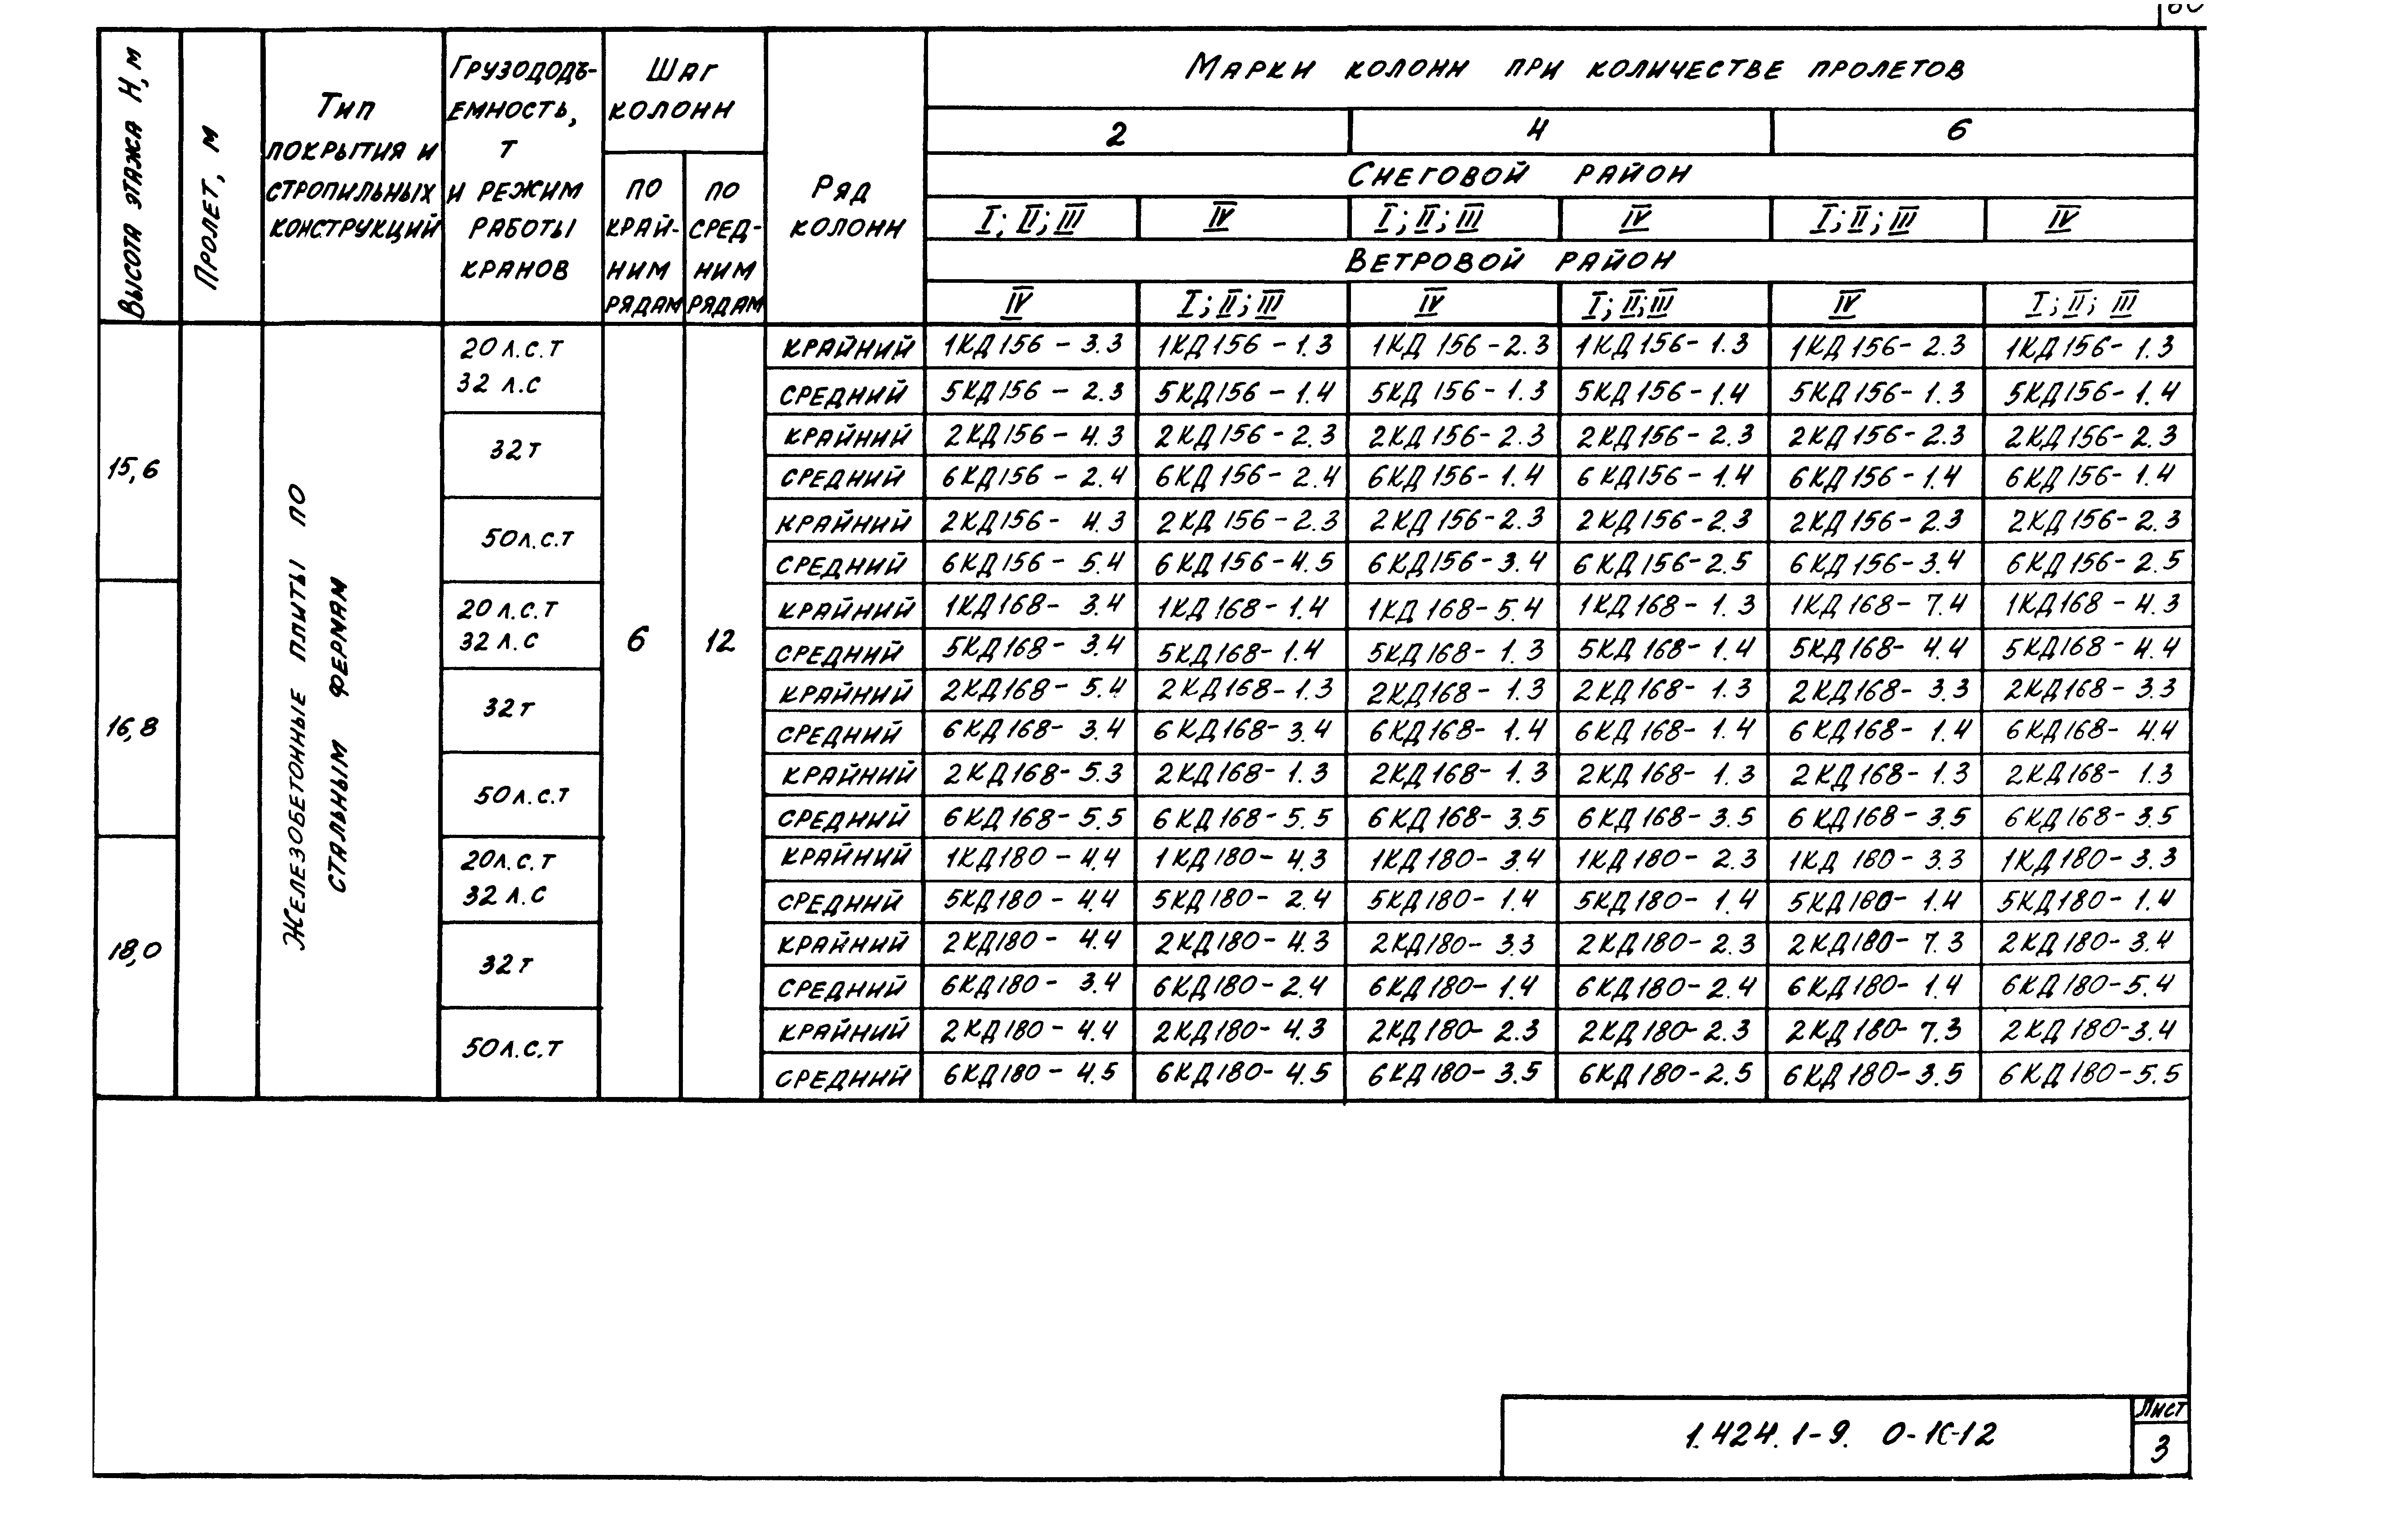 Высота этажа Н, м
Пролет, м
Тип
покрытия и
стропильных
конструкций
Грузододъ-
емность,
т
и режим
работы
кранов
Шаг
колонн
по
край-
ним
рядам
по
сред-
ним
рядам
Ряд
колонн
Марки колонн при количестве пролетов
2 4 6
Снеговой район
I; II; III IV I; II; III IV I; II; III IV
Ветровой район
IV I; II; III IV I; II; III IV I; II; III
15,6
16,8
18,0
Железобетонные плиты по
стальным фермам
6 12
20 л.с.т
32 л.с
крайний 1КД156-3.3 1КД156-1.3 1КД156-2.3 1КД156-1.3 1КД156-2.3 1КД156-1.3
средний 5КД156-2.3 5КД156-1.4 5КД156-1.3 5КД156-1.4 5КД156-1.3 5КД156-1.4
32т
крайний 2КД156-4.3 2КД156-2.3 2КД156-2.3 2КД156-2.3 2КД156-2.3 2КД156-2.3
средний 6КД156-2.4 6КД156-2.4 6КД156-1.4 6КД156-1.4 6КД156-1.4 6КД156-1.4
50л.с.т
крайний 2КД156-4.3 2КД156-2.3 2КД156-2.3 2КД156-2.3 2КД156-2.3 2КД156-2.3
средний 6КД156-5.4 6КД156-4.5 6КД156-3.4 6КД156-2.5 6КД156-3.4 6КД156-2.5
20 л.с.т
32 л.с
крайний 1КД168-3.4 1КД168-1.4 1КД168-5.4 1КД168-1.3 1КД168-7.4 1КД168-4.3
средний 5КД168-3.4 5КД168-1.4 5КД168-1.3 5КД168-1.4 5КД168-4.4 5КД168-4.4
32т
крайний 2КД168-5.4 2КД168-1.3 2КД168-1.3 2КД168-1.3 2КД168-3.3 2КД168-3.3
средний 6КД168-3.4 6КД168-3.4 6КД168-1.4 6КД168-1.4 6КД168-1.4 6КД168-4.4
50л.с.т
крайний 2КД168-5.3 2КД168-1.3 2КД168-1.3 2КД168-1.3 2КД168-1.3 2КД168-1.3
средний 6КД168-5.5 6КД168-5.5 6КД168-3.5 6КД168-3.5 6КД168-3.5 6КД168-3.5
20л.с.т
32 л.с
крайний 1КД180-4.4 1КД180-4.3 1КД180-3.4 1КД180-2.3 1КД180-3.3 1КД180-3.3
средний 5КД180-4.4 5КД180-2.4 5КД180-1.4 5КД180-1.4 5КД180-1.4 5КД180-1.4
32т
крайний 2КД180-4.4 2КД180-4.3 2КД180-3.3 2КД180-2.3 2КД180-7.3 2КД180-3.4
средний 6КД180-3.4 6КД180-2.4 6КД180-1.4 6КД180-2.4 6КД180-1.4 6КД180-5.4
50л.с.т
крайний 2КД180-4.4 2КД180-4.3 2КД180-2.3 2КД180-2.3 2КД180-7.3 2КД180-3.4
средний 6КД180-4.5 6КД180-4.5 6КД180-3.5 6КД180-2.5 6КД180-3.5 6КД180-5.5
1.424.1-9. 0-1С-12
Лист
3